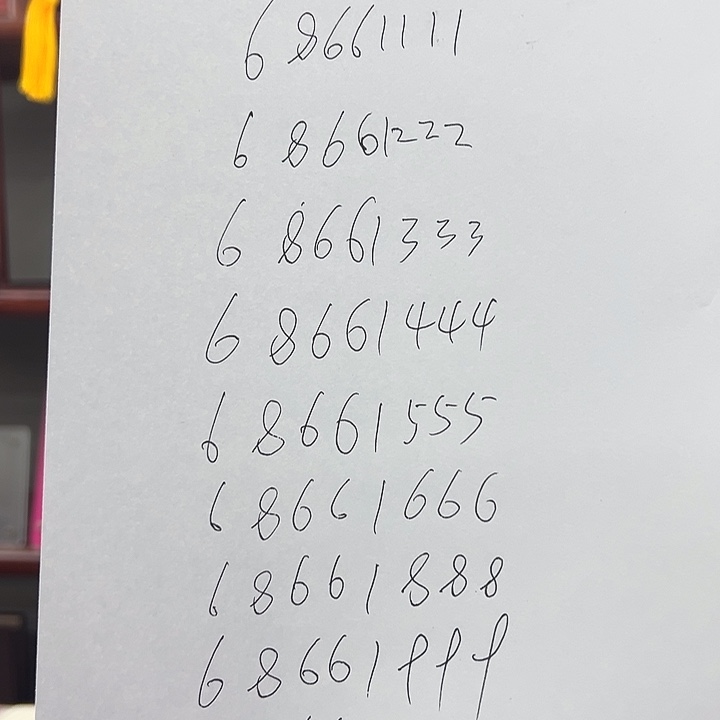 6 8661111
6 8661222
6 8661333
6 8661444
6 8661555
6 8661666
6 8661888
6 8661999